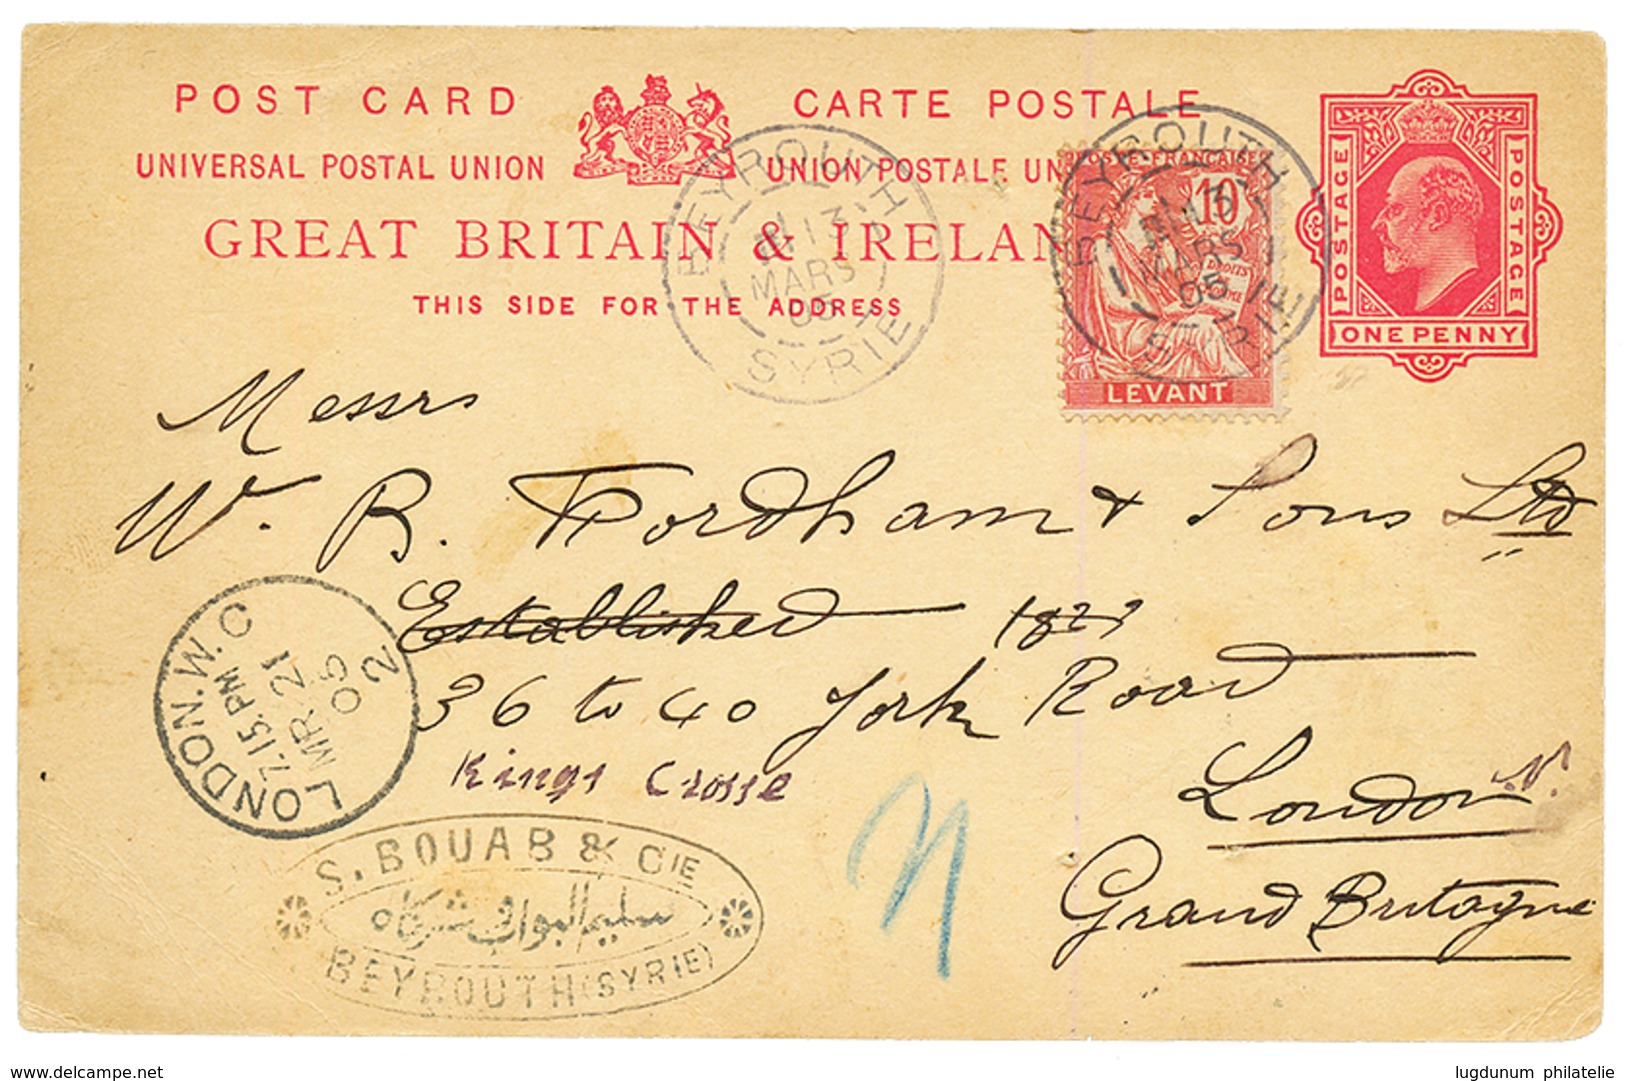 POST CARD CARTE POSTALE
UNIVERSAL POSTAL UNION UNION POSTALE UN
GREAT BRITAIN & IRELAN
THIS SIDE FOR THE ADDRESS
POSTAGE POSTAGE
ONE PENNY
BEYROUTH
13
MARS
05
SYRIE
POSTE FRANÇAISE
10
LEVANT
BEYROUTH
13
MARS
05
SYRIE
Messrs
W. B. Fordham & Sons Ltd
Established 1827
36 to 40 York Road
Kings Crosse
London N.
Grand Bretagne
LONDON. W. C
7.15 PM
MR 21
05
2
N
S. BOUAB & CIE
سليم البواب وشركاه
BEYROUTH (SYRIE)
lugdunum philatelie
www.delcampe.net